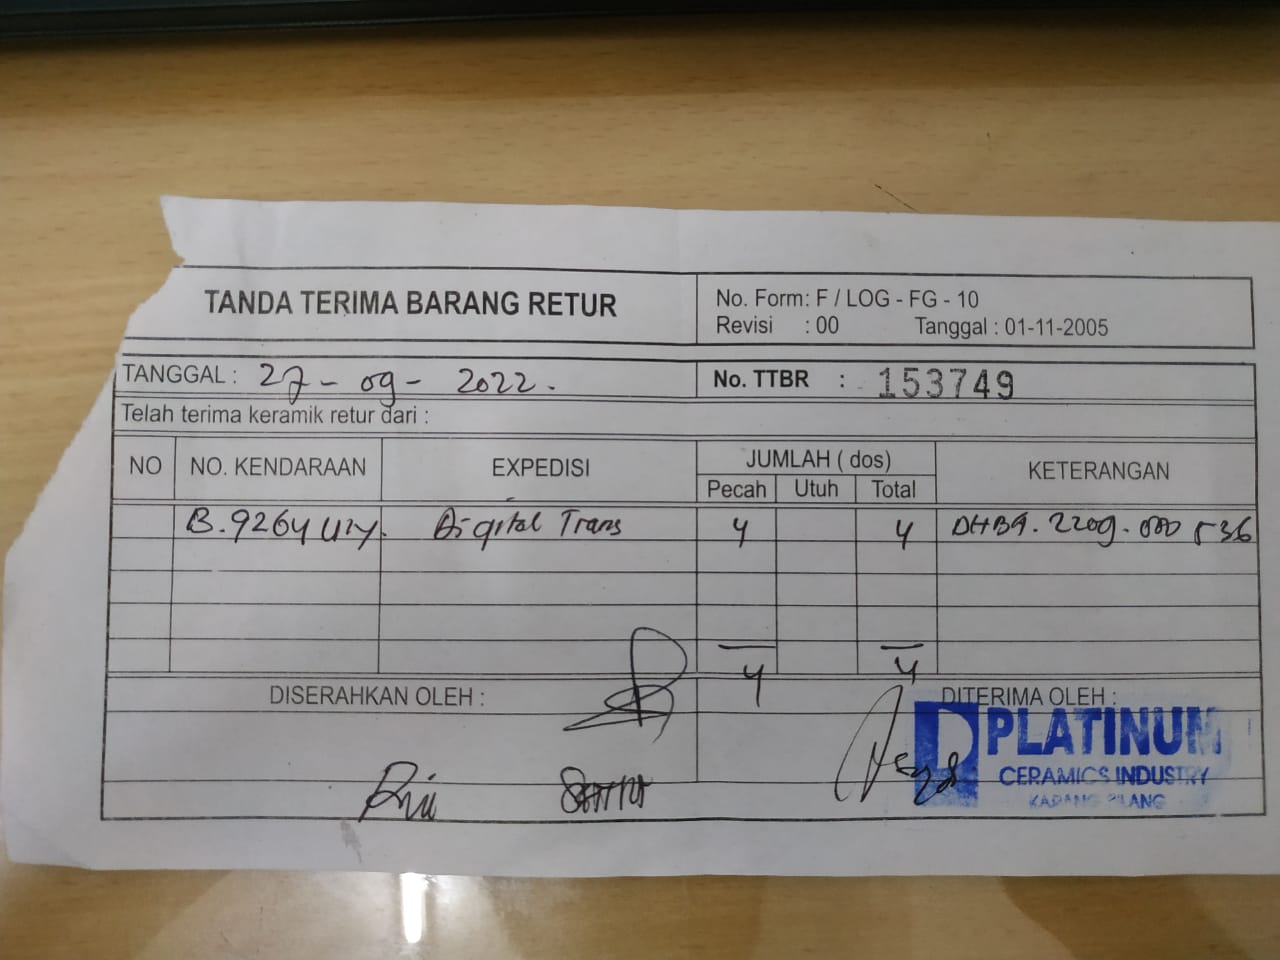 TANDA TERIMA BARANG RETUR
No. Form: F / LOG - FG - 10
Revisi : 00 Tanggal : 01-11-2005
TANGGAL : 27 - 09 - 2022.
No. TTBR : 153749
Telah terima keramik retur dari :
NO NO. KENDARAAN EXPEDISI JUMLAH ( dos) KETERANGAN
Pecah Utuh Total
B. 9264 Digital Trans 4 4 DHB9. 2209. 000 536
4 4
DISERAHKAN OLEH : DITERIMA OLEH :
PLATINUM
CERAMICS INDUSTRY
KARANG PILANG